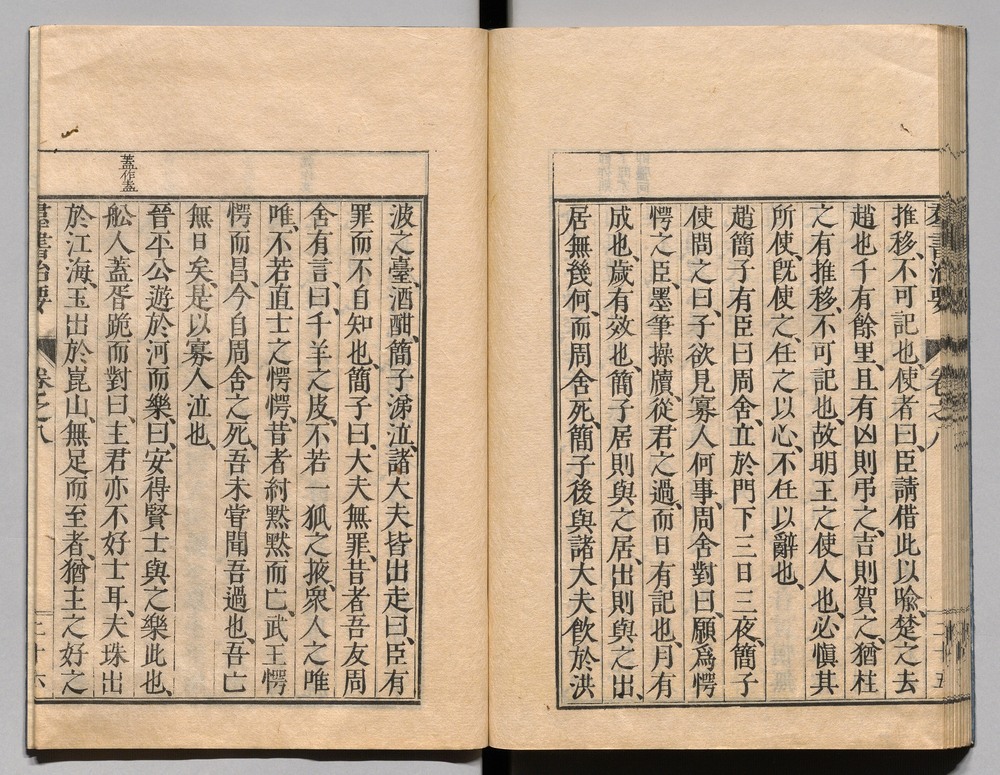 推移、不可記也、使者曰、臣請借此以喩、楚之去
趙也千有餘里、且有凶則弔之、吉則賀之、猶柱
之有推移、不可記也、故明王之使人也、必愼其
所使、旣使之、任之以心、不任以辭也、
趙簡子有臣曰周舍、立於門下三日三夜、簡子
使問之曰、子欲見寡人何事、周舍對曰、願爲愕
愕之臣、墨筆操牘、從君之過、而日有記也、月有
成也、歲有效也、簡子居則與之居、出則與之出、
居無幾何、而周舍死、簡子後與諸大夫飮於洪
波之臺、酒酣、簡子涕泣、諸大夫皆出走曰、臣有
罪而不自知也、簡子曰、大夫無罪、昔者吾友周
舍有言、曰、千羊之皮、不若一狐之掖、衆人之唯
唯、不若直士之愕愕、昔者紂默默而亡、武王愕
愕而昌、今自周舍之死、吾未甞聞吾過也、吾亡
無日矣、是以寡人泣也、
晉平公、遊於河而樂、曰、安得賢士與之樂此也、
舩人蓋胥跪而對曰、主君亦不好士耳、夫珠出
於江海、玉出於崑山、無足而至者、猶主之好之
蓋作盍
羣書治要 卷之八 二十六
羣書治要 卷之八 二十五